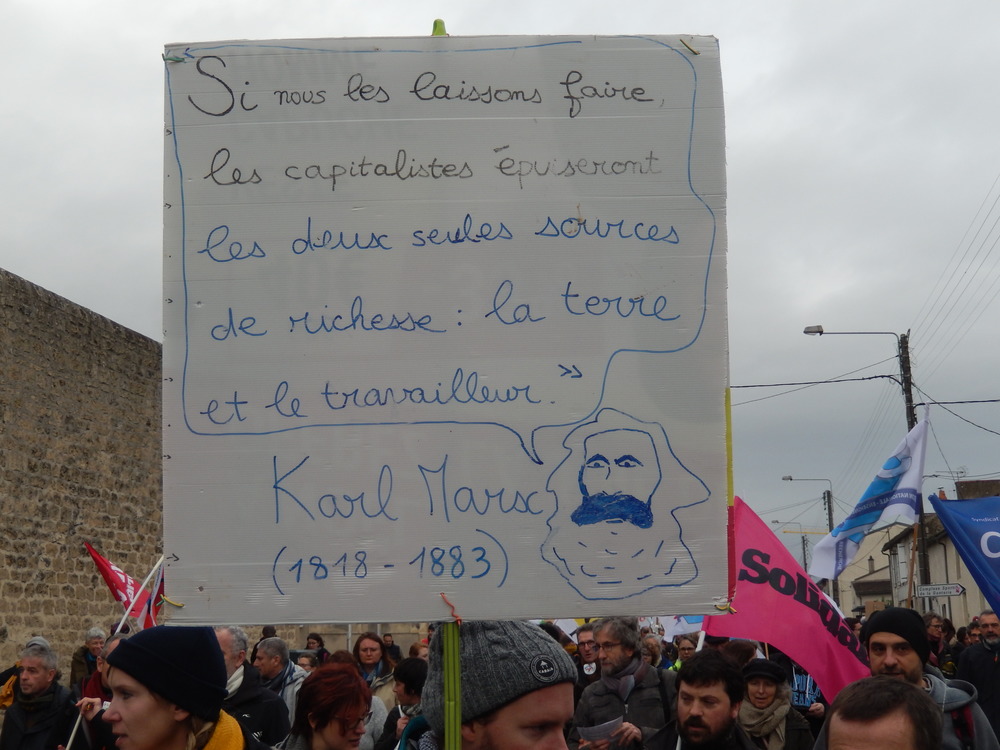 « Si nous les laissons faire,
les capitalistes épuiseront
les deux seules sources
de richesse : la terre
et le travailleur. »
Karl Marx
(1818 - 1883)
Solida
Syndicat
C